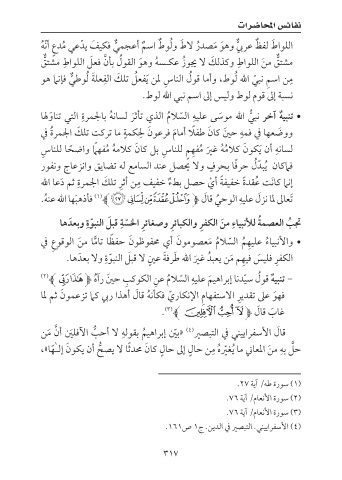 نفائس المحاضرات
اللواطَ لفظٌ عربيٌّ وهوَ مَصدرُ لاطَ ولُوطٌ اسمٌ أعجميٌّ فكيفَ يدّعي مُدعٍ أنّهُ
مشتقٌّ منَ اللواطِ وكذلكَ لا يجوزُ عكسـهُ وهوَ القولُ بأنَّ فعلَ اللواطِ مشـتقٌّ
مِن اسمِ نبيِّ اللهِ لُوط، وأما قولُ الناسِ لمن يَفعلُ تلكَ الفِعلةَ لُوطيٌّ فإنما هوَ
نسبة إلى قوم لوط وليس إلى اسم نبي الله لوط.
• تنبيهٌ آخر نبيُّ اللهِ موسَى عليهِ السّلامُ الذي تأثّرَ لسانهُ بالجمرةِ التي تناولَها
ووضعَها في فمهِ حينَ كانَ طفلًا أمامَ فرعونَ لحكمةٍ ما تركت تلكَ الجمرةُ في
لسانهِ أن يكونَ كلامُهُ غيرَ مُفهِمٍ للناسِ بل كانَ كلامهُ مُفهِمًا واضحًا للناسِ
فما كان يُبدّلُ حرفًا بحرفٍ ولا يحصل عند السامع له تضايق وانزعاج ونفور
إنما كانَت عُقدةً خفيفةً أيْ حصل بطءٌ خفيف مِن أثرِ تلكَ الجمرةِ ثم دَعا اللهَ
تَعالى لما نزل عليهِ الوحيُ قالَ ﴿وَٱحۡلُلۡ عُقۡدَةٗ مِّن لِّسَانِي ٢٧﴾(١) فأذهبَها اللهُ عنهُ.
تجبُ العصمةُ للأنبياءِ منَ الكفرِ والكبائرِ وصغائرِ الخسّةِ قبلَ النبوّةِ وبعدَها
• والأنبياءُ عليهمُ السّلامُ مَعصومونَ أي محفوظونَ حفظًا تامًّا منَ الوقوعِ في
الكفرِ فليسَ فيهِم مَن يعبدُ غيرَ اللهِ طَرفةَ عينٍ لا قبلَ النبوّةِ ولا بعدَها.
– تنبيهٌ قولُ سيّدنا إبراهيمَ عليهِ السّلامُ عنِ الكوكبِ حينَ رآهُ ﴿هَٰذَا رَبِّي﴾(٢)
فهوَ على تقديرِ الاستفهامِ الإنكاريِّ فكأنّهُ قالَ أهذا ربي كما تزعمونَ ثم لما
غابَ قالَ ﴿لَآ أُحِبُّ ٱلۡأٓفِلِينَ﴾(٣).
قالَ الأسفرايينيُ في التبصيرِ(٤) «بيّن إبراهيمُ بقولهِ لا أُحبُّ الآفلينَ أنَّ مَن
حلَّ بهِ منَ المعاني ما يُغيّرهُ مِن حالٍ إلى حالٍ كانَ محدثًا لا يصحُّ أن يكونَ إلـهًا»،
(١) سورة طه/ آية ٢٧.
(٢) سورة الأنعام/ آية ٧٦.
(٣) سورة الأنعام/ آية ٧٦.
(٤) الأسفراييني، التبصير في الدين، ج١ ص١٦١.
٣١٧